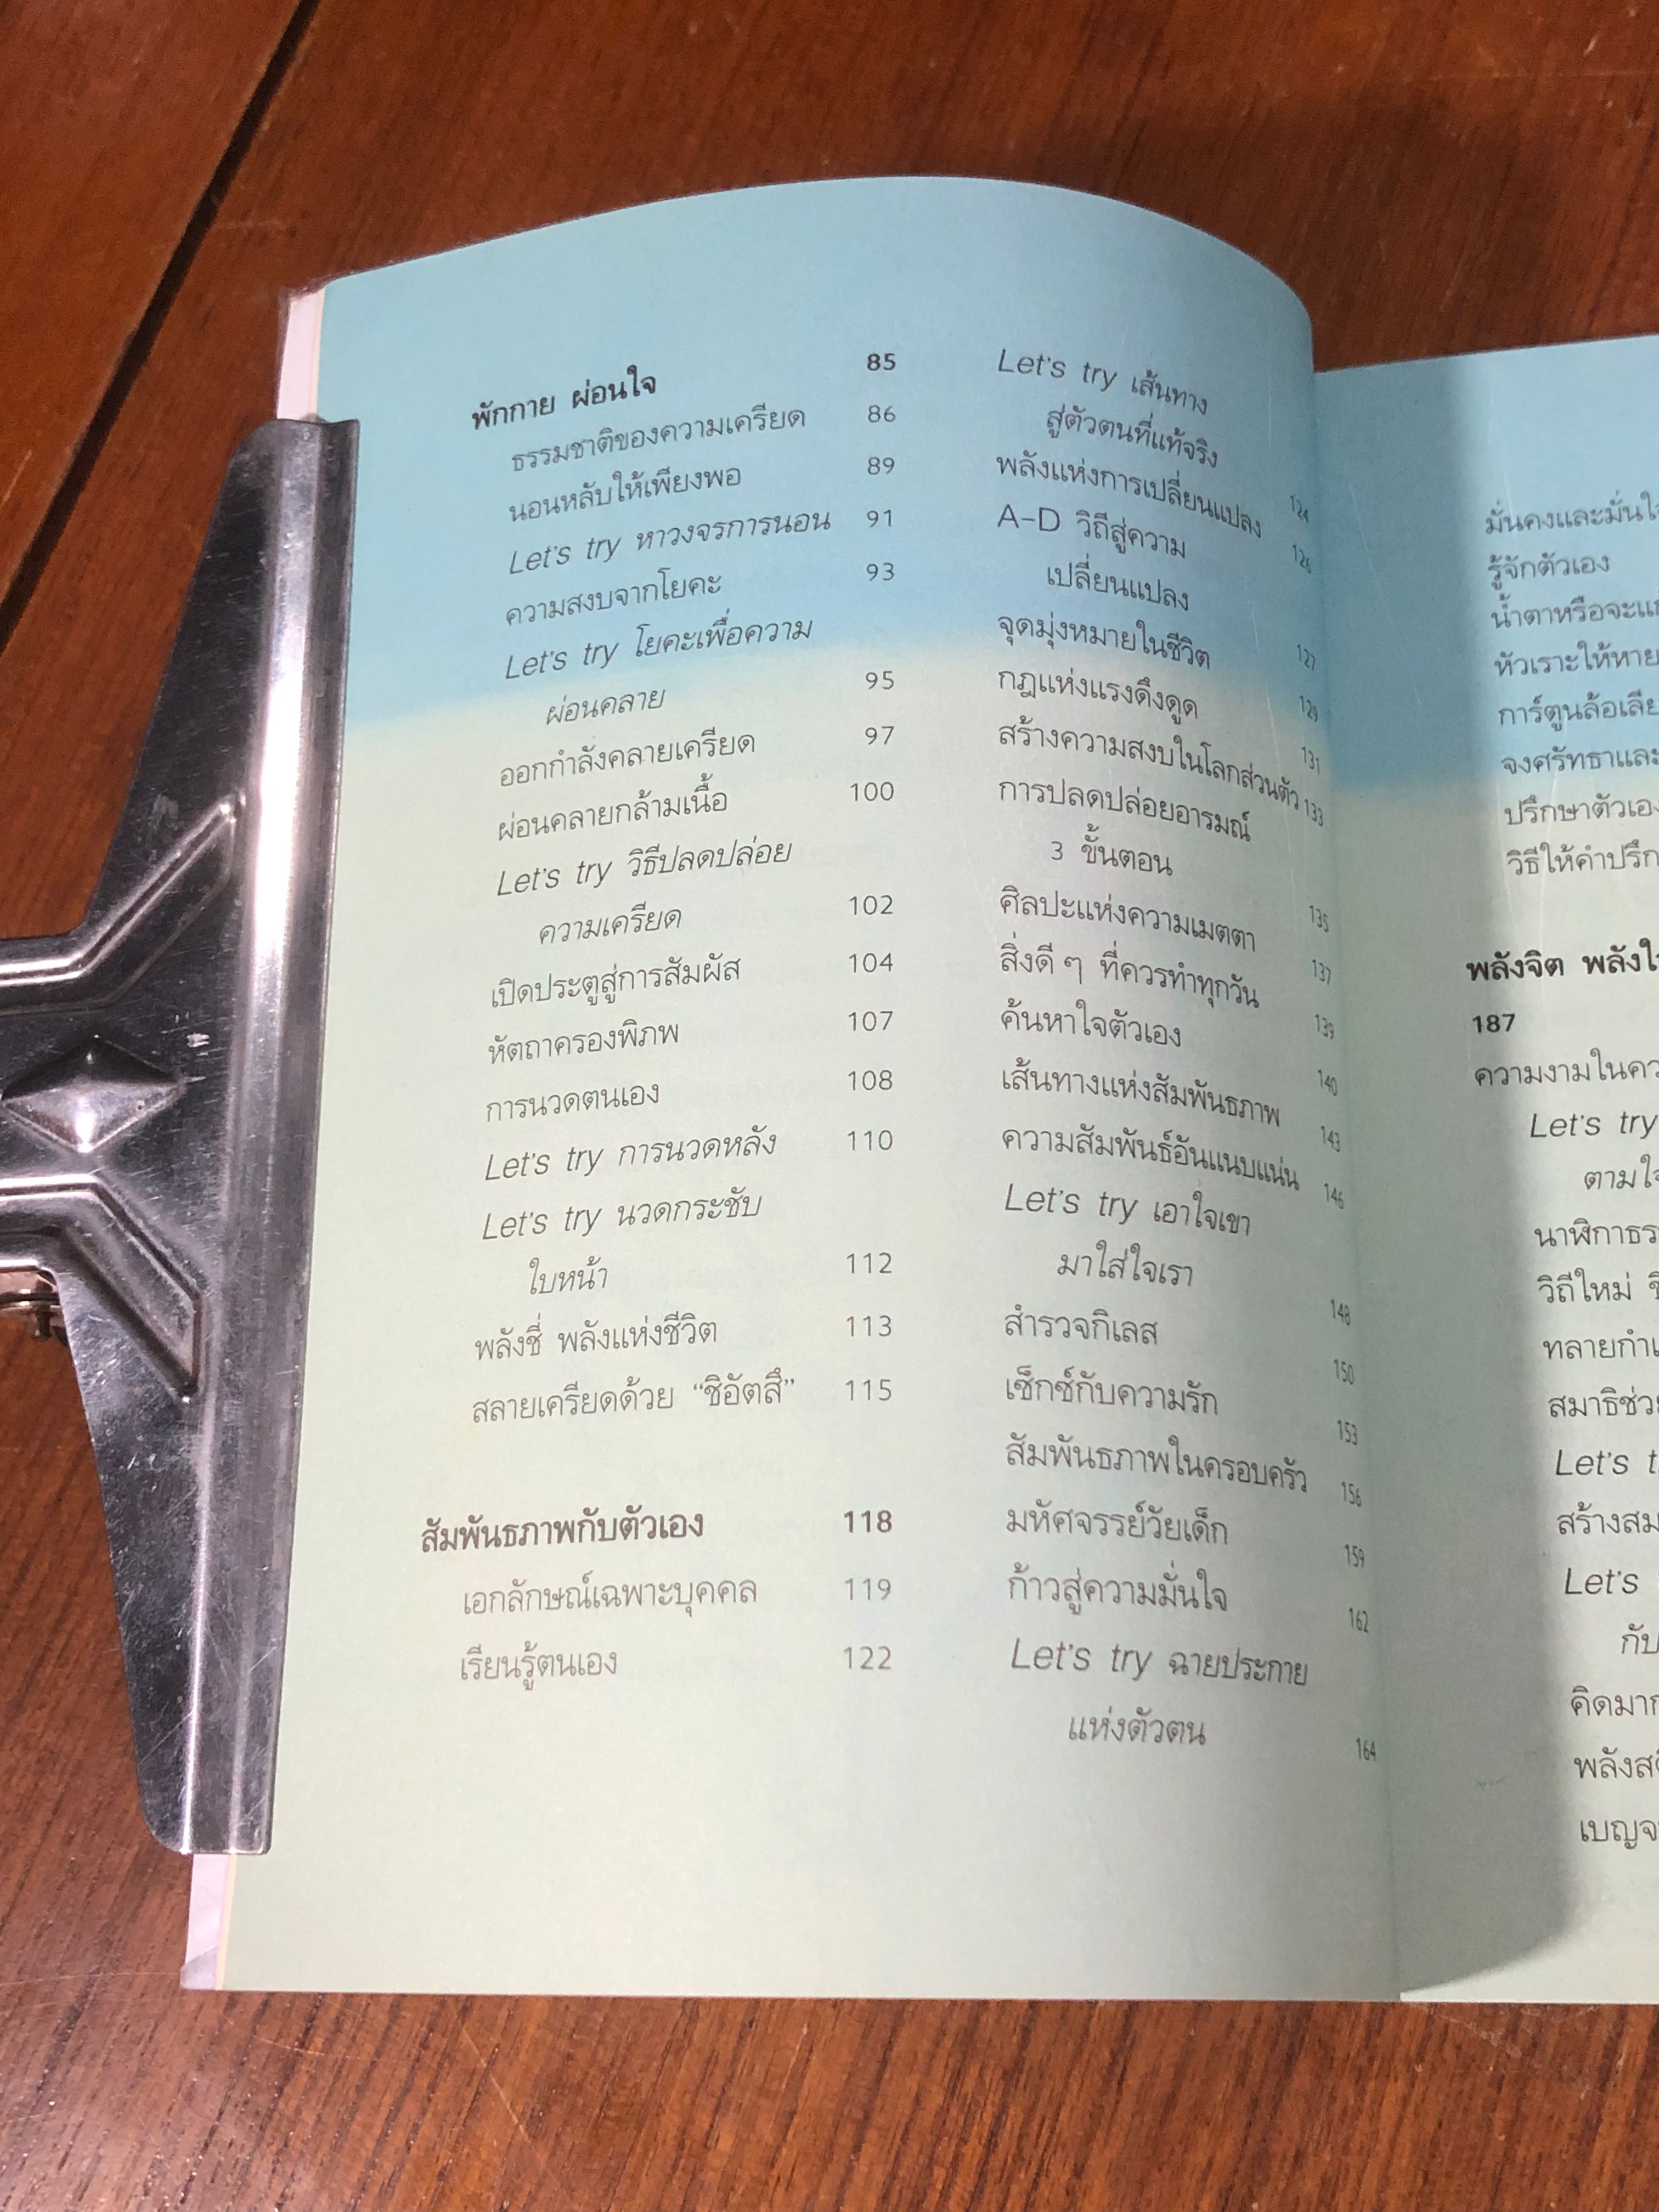 พักกาย ผ่อนใจ 85
ธรรมชาติของความเครียด 86
นอนหลับให้เพียงพอ 89
Let's try หาวงจรการนอน 91
ความสงบจากโยคะ 93
Let's try โยคะเพื่อความ
ผ่อนคลาย 95
ออกกำลังคลายเครียด 97
ผ่อนคลายกล้ามเนื้อ 100
Let's try วิธีปลดปล่อย
ความเครียด 102
เปิดประตูสู่การสัมผัส 104
หัตถาครองพิภพ 107
การนวดตนเอง 108
Let's try การนวดหลัง 110
Let's try นวดกระชับ
ใบหน้า 112
พลังชี่ พลังแห่งชีวิต 113
สลายเครียดด้วย “ชิอัตสึ” 115
สัมพันธภาพกับตัวเอง 118
เอกลักษณ์เฉพาะบุคคล 119
เรียนรู้ตนเอง 122
Let's try เส้นทาง
สู่ตัวตนที่แท้จริง 124
พลังแห่งการเปลี่ยนแปลง 126
A-D วิถีสู่ความ
เปลี่ยนแปลง 127
จุดมุ่งหมายในชีวิต 129
กฎแห่งแรงดึงดูด 131
สร้างความสงบในโลกส่วนตัว 133
การปลดปล่อยอารมณ์
3 ขั้นตอน 135
ศิลปะแห่งความเมตตา 137
สิ่งดี ๆ ที่ควรทำทุกวัน 139
ค้นหาใจตัวเอง 140
เส้นทางแห่งสัมพันธภาพ 143
ความสัมพันธ์อันแนบแน่น 146
Let's try เอาใจเขา
มาใส่ใจเรา 148
สำรวจกิเลส 150
เซ็กซ์กับความรัก 153
สัมพันธภาพในครอบครัว 156
มหัศจรรย์วัยเด็ก 159
ก้าวสู่ความมั่นใจ 162
Let's try ฉายประกาย
แห่งตัวตน 164
มั่นคงและมั่นใ
รู้จักตัวเอง
น้ำตาหรือจะแ
หัวเราะให้หาย
การ์ตูนล้อเลีย
จงศรัทธาและ
ปรึกษาตัวเอง
วิธีให้คำปรึก
พลังจิต พลังใ
187
ความงามในคว
Let's try
ตามใ
นาฬิกาธร
วิถีใหม่
ทลายกำ
สมาธิช่ว
Let's t
สร้างสม
Let's
กับ
คิดมาก
พลังส
เบญจ